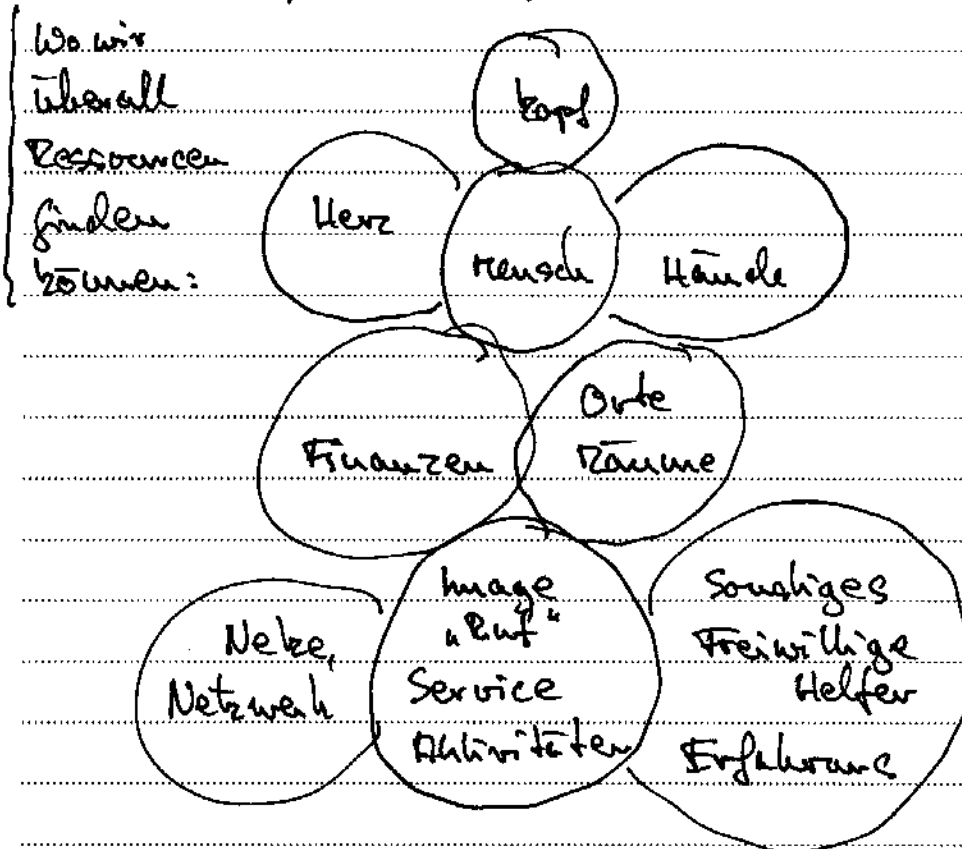 Wo wir
überall
Ressourcen
finden
können:
Kopf
Herz
Mensch
Hände
Finanzen
Orte
Räume
Netze,
Netzwerk
Image
„Ruf“
Service
Aktivitäten
Sonstiges
Freiwillige
Helfer
Erfahrung